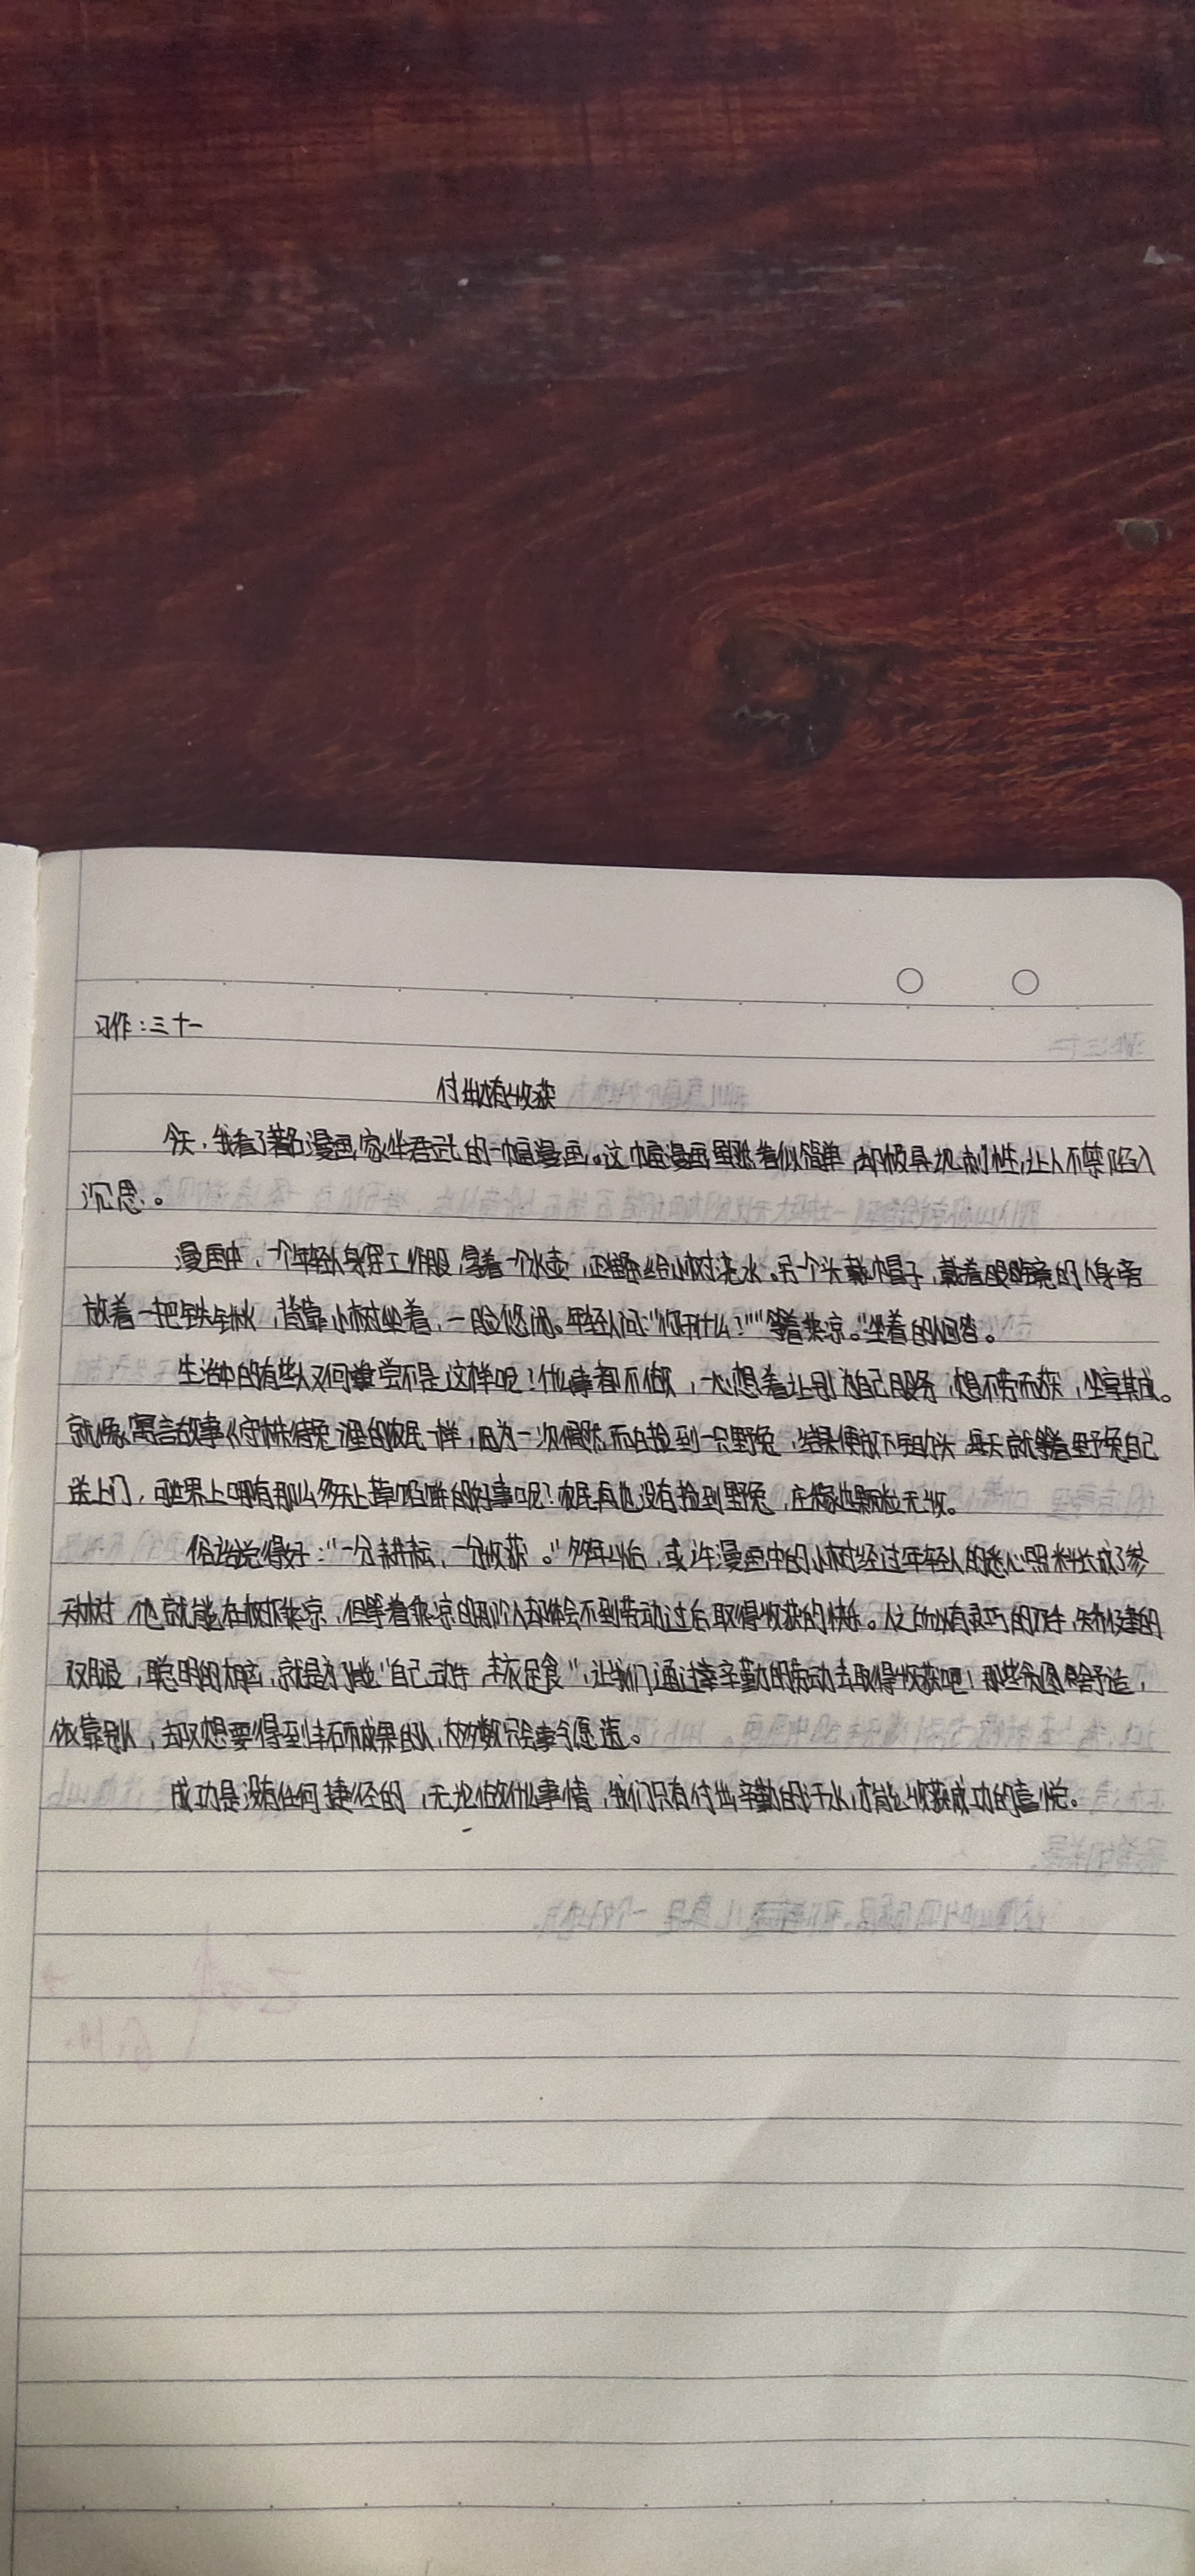 习作:三十一
付出才有收获
今天,我看了著名漫画家华君武的一幅漫画。这幅漫画虽然看似简单,却极具讽刺性,让人不禁陷入
沉思。
漫画中,一个年轻人身穿工作服,拿着一个水壶,正在给小树浇水。另一个头戴帽子,戴着眼睛的人身旁
放着一把铁锹,背靠小树坐着,一脸悠闲。年轻人问:"你干什么?""等着乘凉。"坐着的人回答。
生活中的有些人又何尝不是这样呢?什么事都不做,一心想着让别人为自己服务,想不劳而获,坐享其成。
就像寓言故事《守株待兔》里的农民一样,因为一次偶然而白捡到一只野兔,结果便放下锄头,每天就等着野兔自己
送上门,可世界上哪有那么多天上掉馅饼的好事呢?农民再也没有捡到野兔,庄稼也颗粒无收。
俗话说得好:"一分耕耘,一分收获。"多年以后,或许漫画中的小树经过年轻人的悉心照料长成了参
天大树,他就能在树下乘凉,但等着乘凉的那个人却体会不到劳动过后取得收获的快乐。人之所以有灵巧的双手,矫健的
双腿,聪明的大脑,就是为了做"自己动手,丰衣足食",让我们通过辛勤的劳动去取得收获吧!那些贪图舒适,
依靠别人,却又想要得到丰硕成果的人,大多数只会事与愿违。
成功是没有任何捷径的,无论做什么事情,我们只有付出辛勤的汗水,才能收获成功的喜悦。